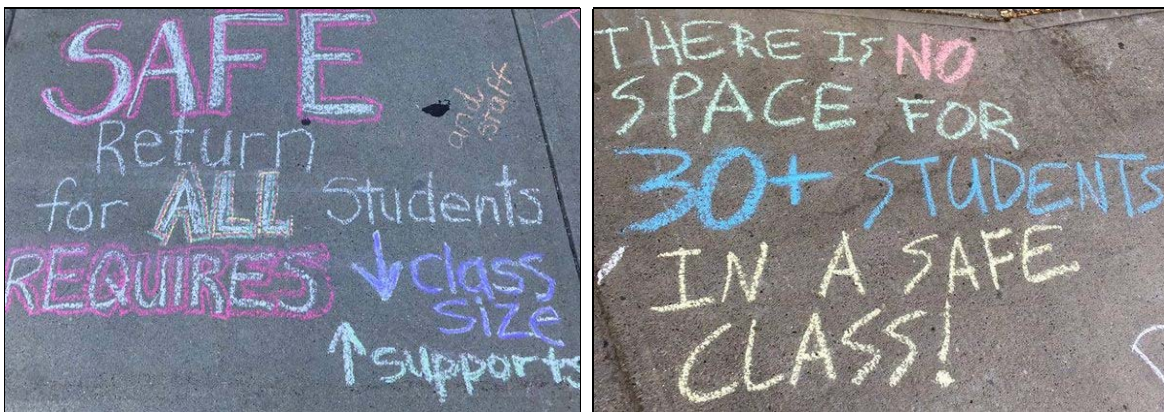 SAFE
and
staff
Return
for ALL Students
REQUIRES
↓ class
size
↑ supports
THERE IS NO
SPACE FOR
30+ STUDENTS
IN A SAFE
CLASS!